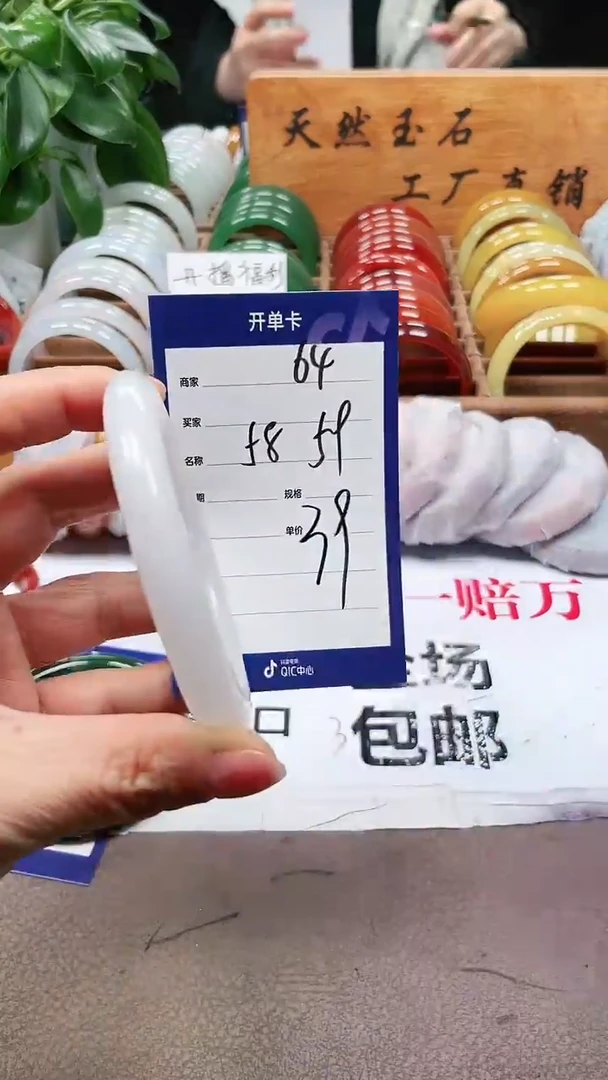 天然玉石
工厂直销
开播福利
开单卡
商家 64
买家
名称 58 59
期 规格
单价 39
抖音电商
QIC中心
一赔万
全场
包邮